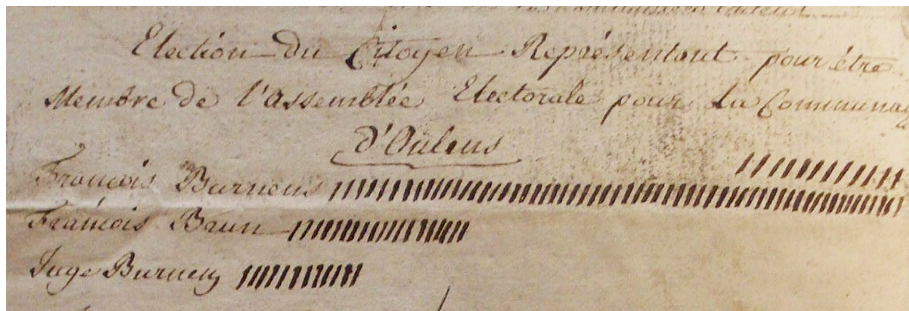 Election du Citoyen Représentant pour être
Membre de l'assemblée Electorale pour La Communauté
d'Oulens
François Burnens
François Braun
Juge Burnens